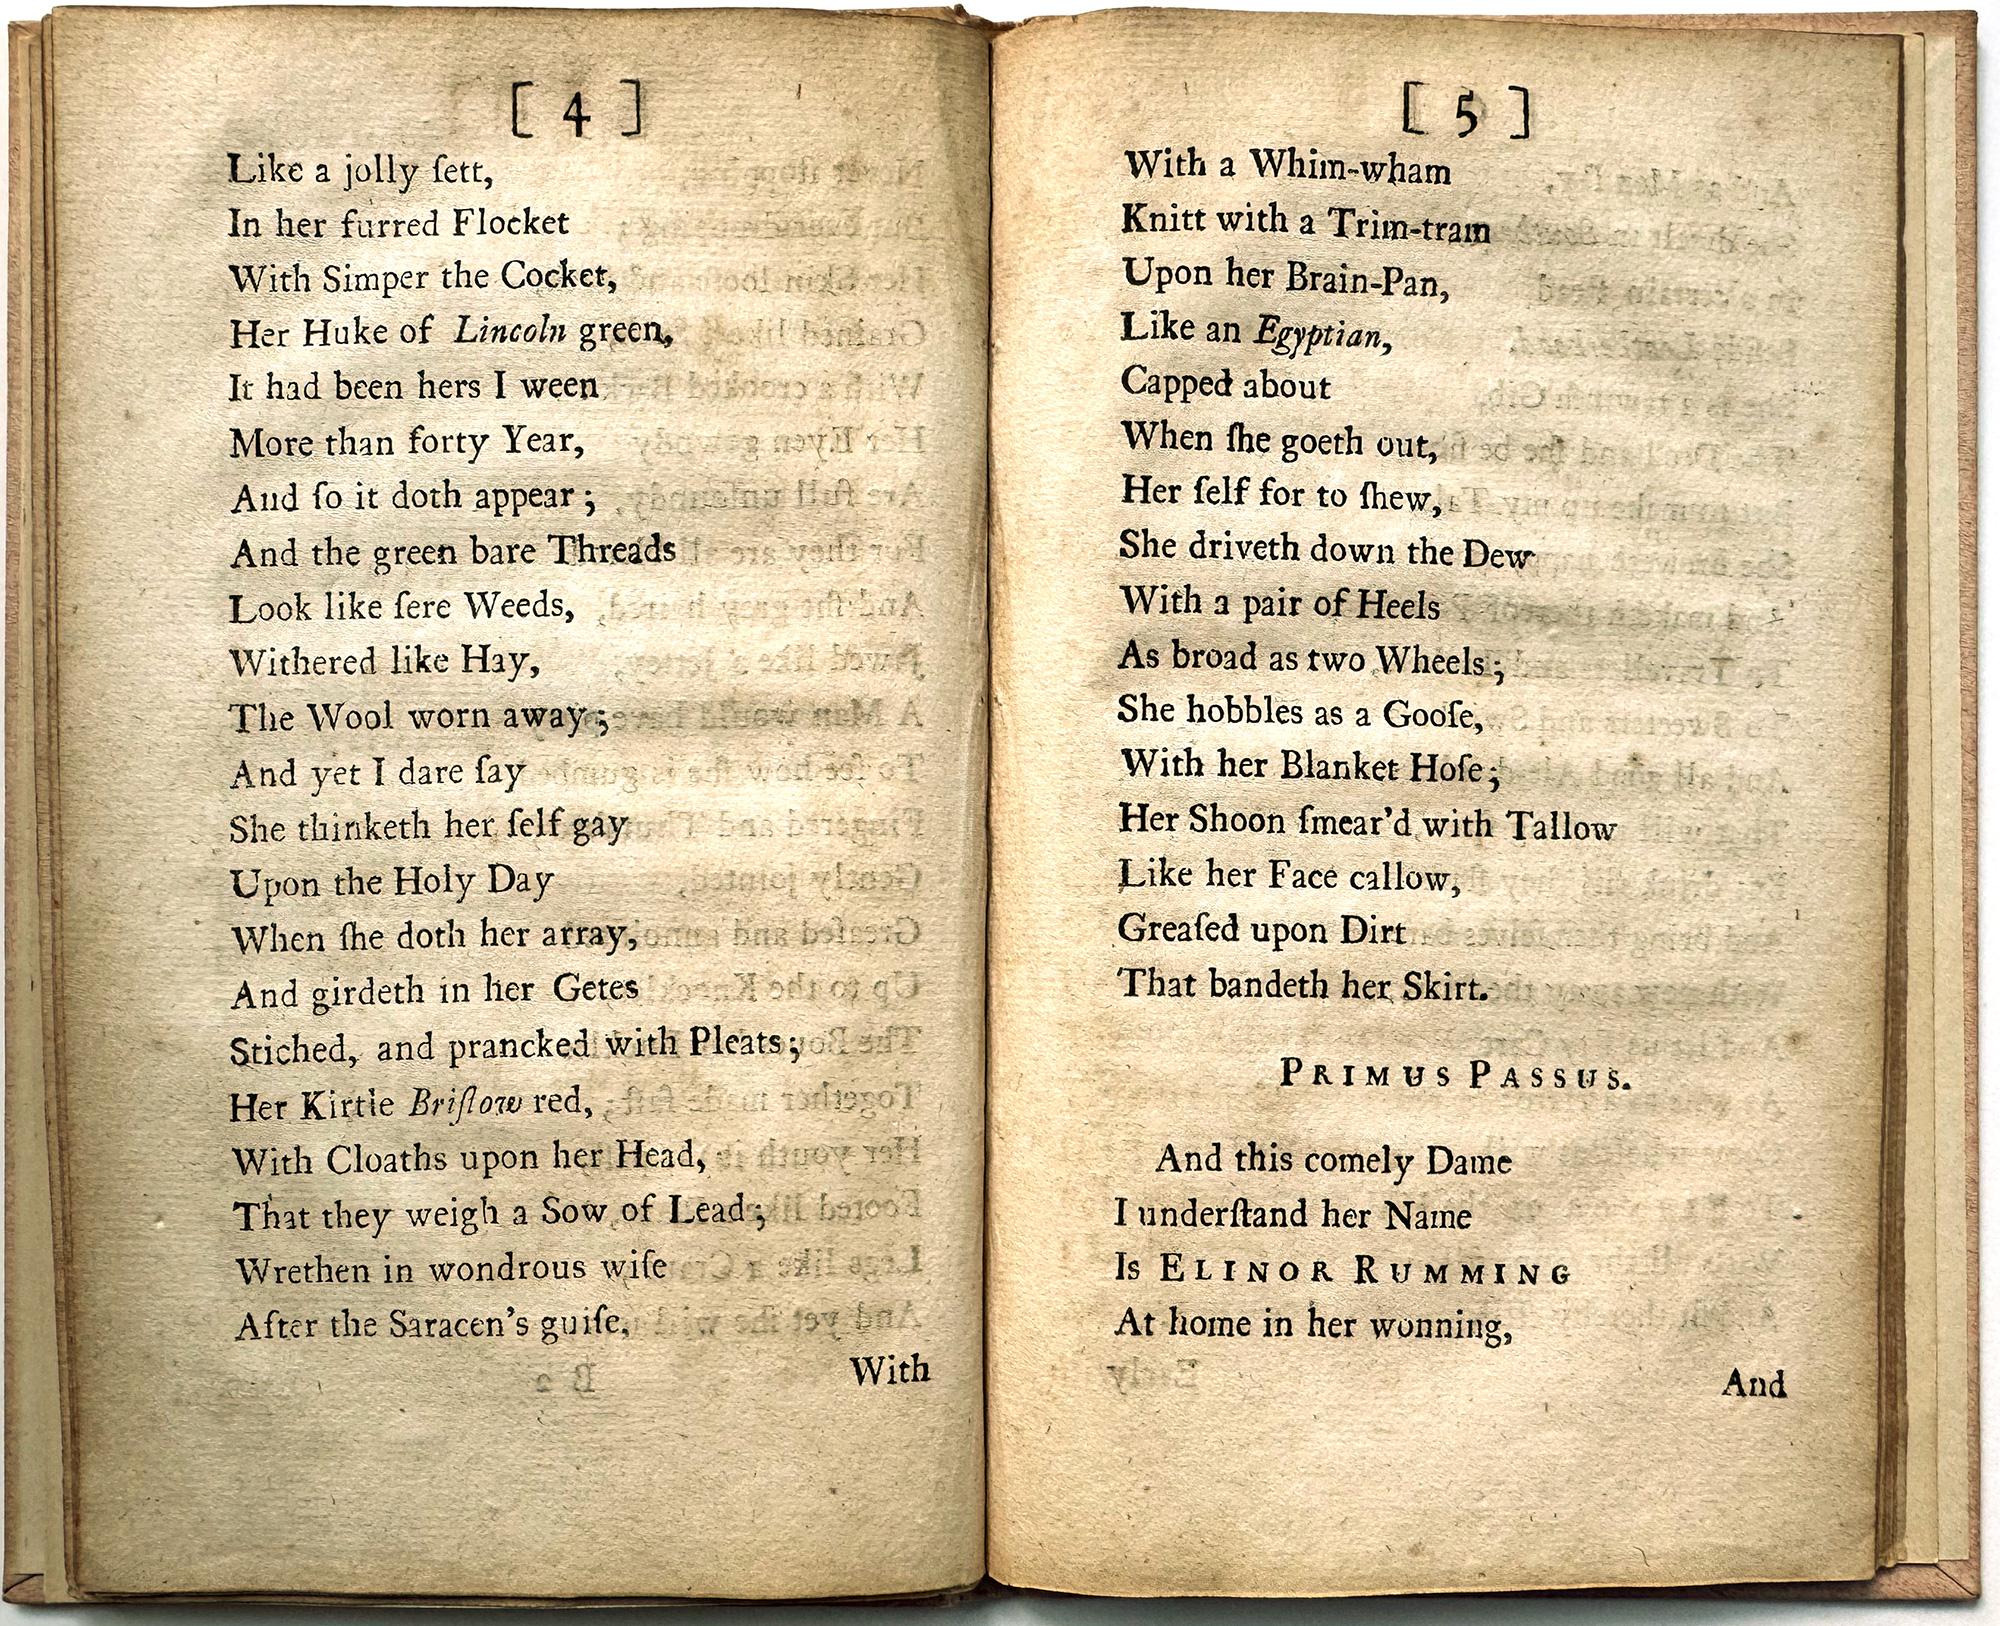 [ 4 ]
Like a jolly ſett,
In her furred Flocket
With Simper the Cocket,
Her Huke of Lincoln green,
It had been hers I ween
More than forty Year,
And ſo it doth appear ;
And the green bare Threads
Look like ſere Weeds,
Withered like Hay,
The Wool worn away ;
And yet I dare ſay
She thinketh her ſelf gay
Upon the Holy Day
When ſhe doth her array,
And girdeth in her Getes
Stiched, and prancked with Pleats ;
Her Kirtle Briſtow red,
With Cloaths upon her Head,
That they weigh a Sow of Lead ;
Wrethen in wondrous wiſe
After the Saracen's guiſe,
With
[ 5 ]
With a Whim-wham
Knitt with a Trim-tram
Upon her Brain-Pan,
Like an Egyptian,
Capped about
When ſhe goeth out,
Her ſelf for to ſhew,
She driveth down the Dew
With a pair of Heels
As broad as two Wheels ;
She hobbles as a Gooſe,
With her Blanket Hoſe ;
Her Shoon ſmear'd with Tallow
Like her Face callow,
Greaſed upon Dirt
That bandeth her Skirt.
PRIMUS PASSUS.
And this comely Dame
I underſtand her Name
Is ELINOR RUMMING
At home in her wonning,
And